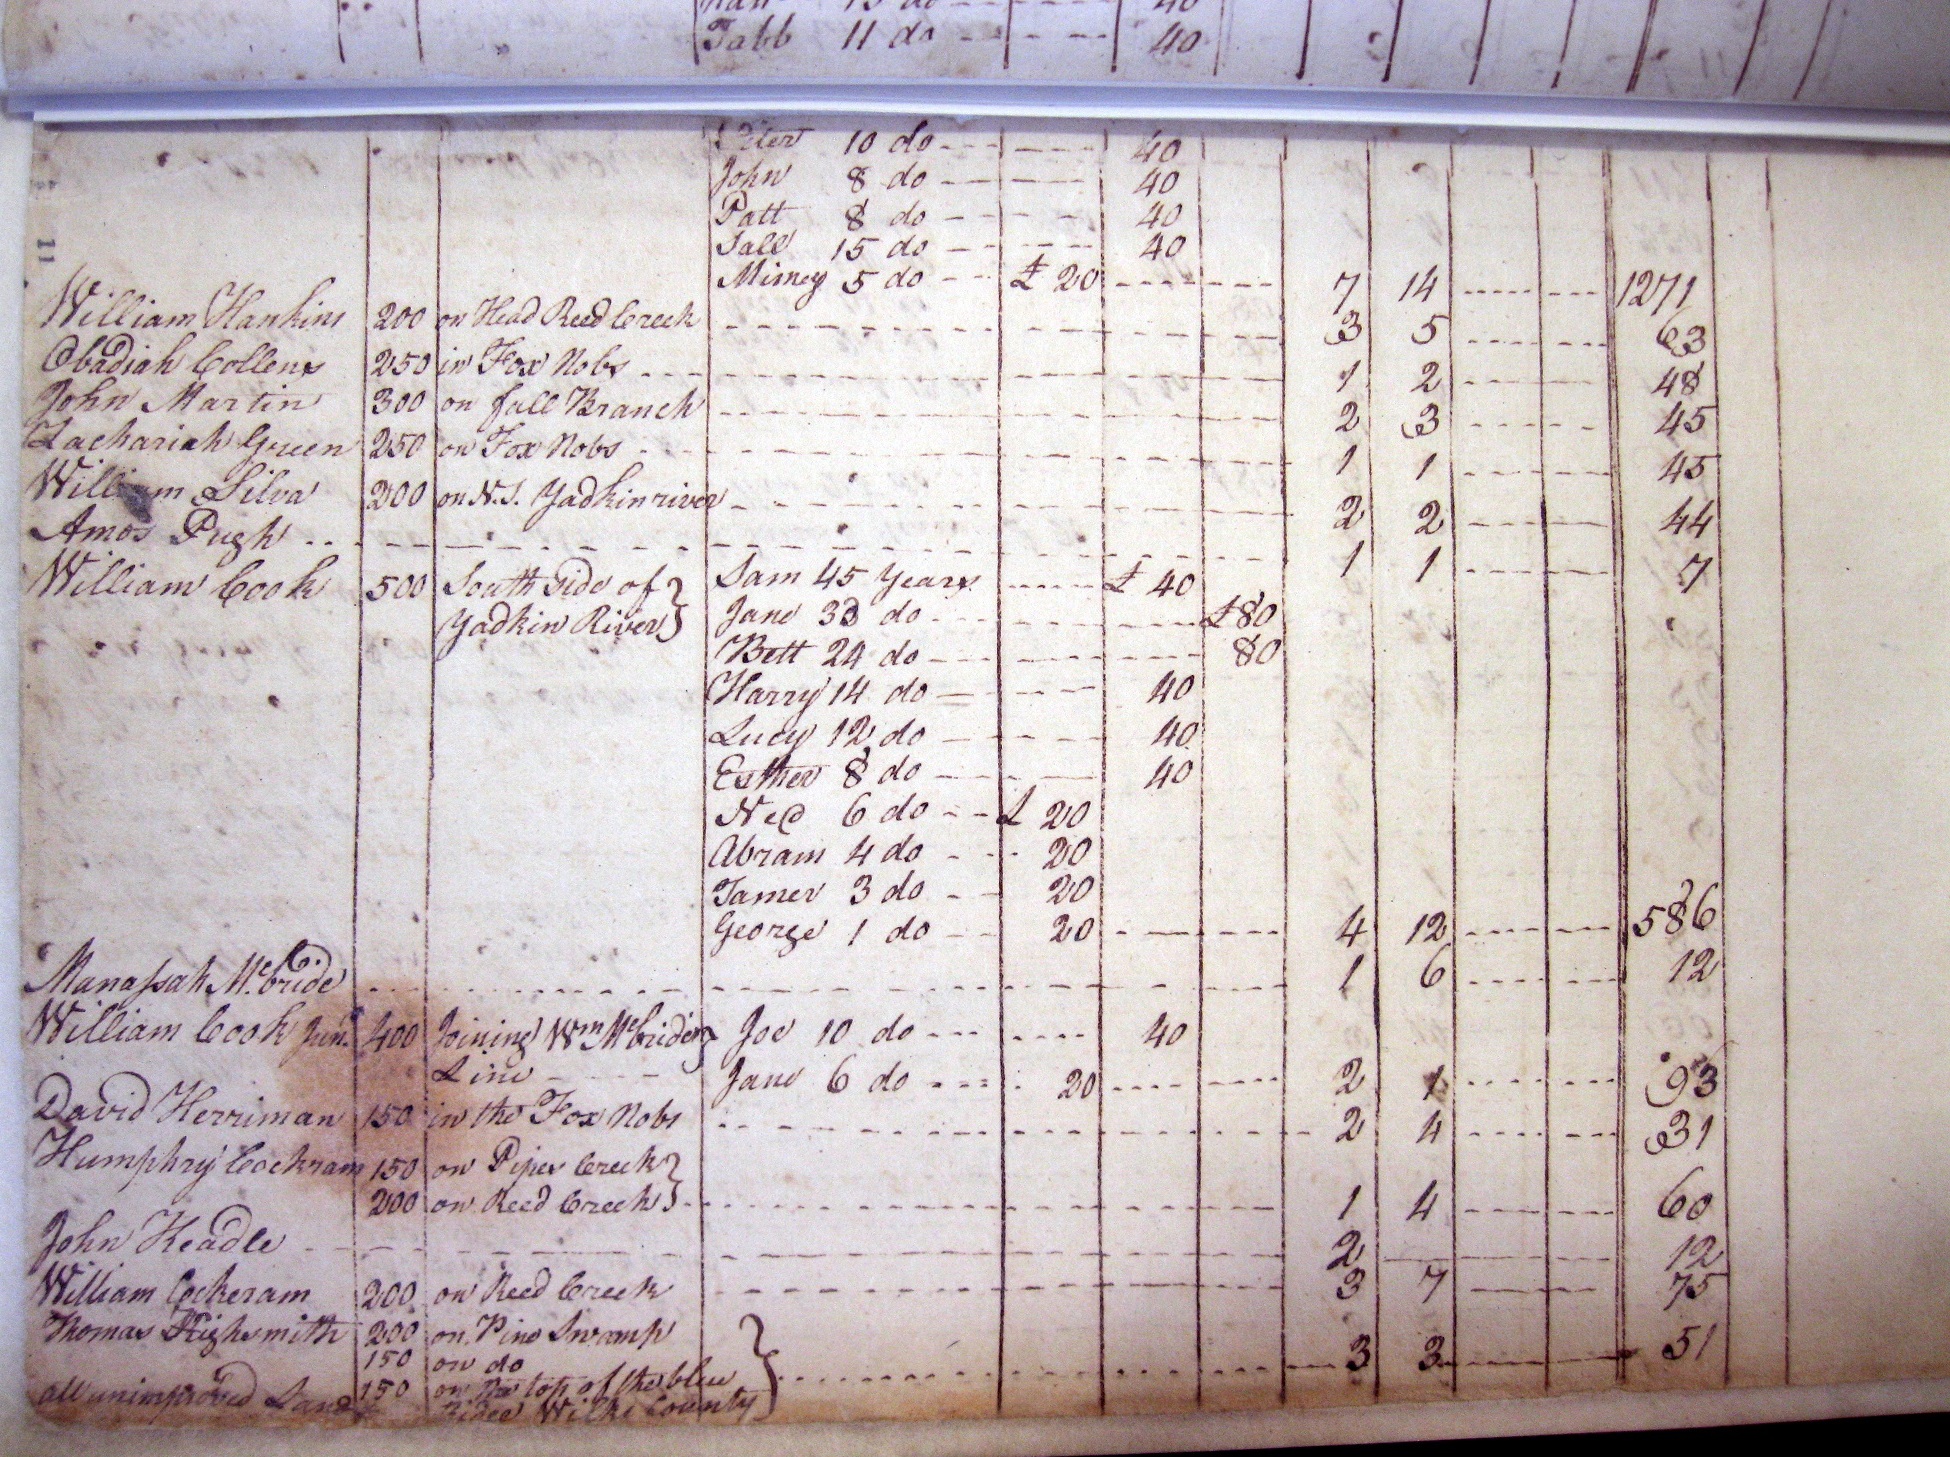 Tabb 11 do 40
Peter 10 do 40
John 8 do 40
Patt 8 do 40
Sall 15 do 40
Mimey 5 do £ 20 7 14 1271
William Hankins 200 on Head Reed Creek 3 5 63
Obadiah Collens 250 in Fox Nobs 1 2 48
John Martin 300 on fall Branch 2 3 45
Zachariah Green 250 on Fox Nobs 1 1 45
William Silva 200 on N.S. Yadkin river 2 2 44
Amos Pugh 1 1 7
William Cook 500 South Side of Sam 45 Years £ 40
Yadkin River Jane 33 do £80
Bett 24 do 80
Harry 14 do 40
Lucy 12 do 40
Esther 8 do 40
Ned 6 do £ 20
Abram 4 do 20
Tamer 3 do 20
George 1 do 20 4 12 586
Manassah McBride 1 6 12
William Cook Junr 400 Joining Wm McBride's Joe 10 do 40
Line Jane 6 do 20 2 1 93
David Herriman 150 in the Fox Nobs 2 4 31
Humphry Cockram 150 on Pipes Creek
200 on Reed Creek 1 4 60
John Headle 2 12
William Cockeram 200 on Reed Creek 3 7 75
Thomas Highsmith 200 on Pine Swamp
150 on do 3 3 51
all unimproved Land 150 on the top of the blue
Ridge Wilks County